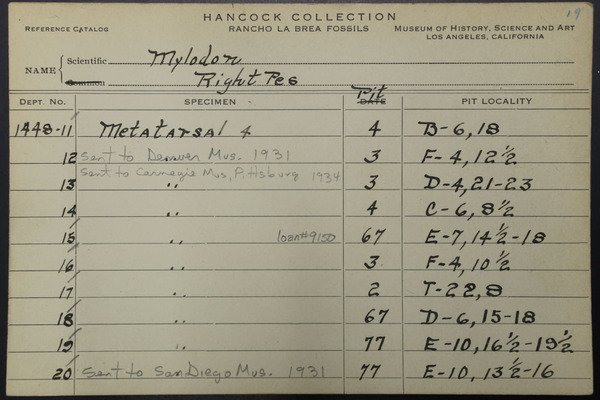 19
HANCOCK COLLECTION
REFERENCE CATALOG RANCHO LA BREA FOSSILS MUSEUM OF HISTORY, SCIENCE AND ART
LOS ANGELES, CALIFORNIA
NAME Scientific Mylodon
Common Right Pes
Pit
DEPT. NO. SPECIMEN DATE PIT LOCALITY
1448-11 Metatarsal 4 4 B-6, 18
12 Sent to Denver Mus. 1931 3 F-4, 12 1/2
13 Sent to Carnegie Mus, Pittsburg 1934 " 3 D-4, 21-23
14 " 4 C-6, 8 1/2
15 " loan#9150 67 E-7, 14 1/2-18
16 " 3 F-4, 10 1/2
17 " 2 T-22, 8
18 " 67 D-6, 15-18
19 " 77 E-10, 16 1/2-19 1/2
20 Sent to San Diego Mus. 1931 77 E-10, 13 1/2-16